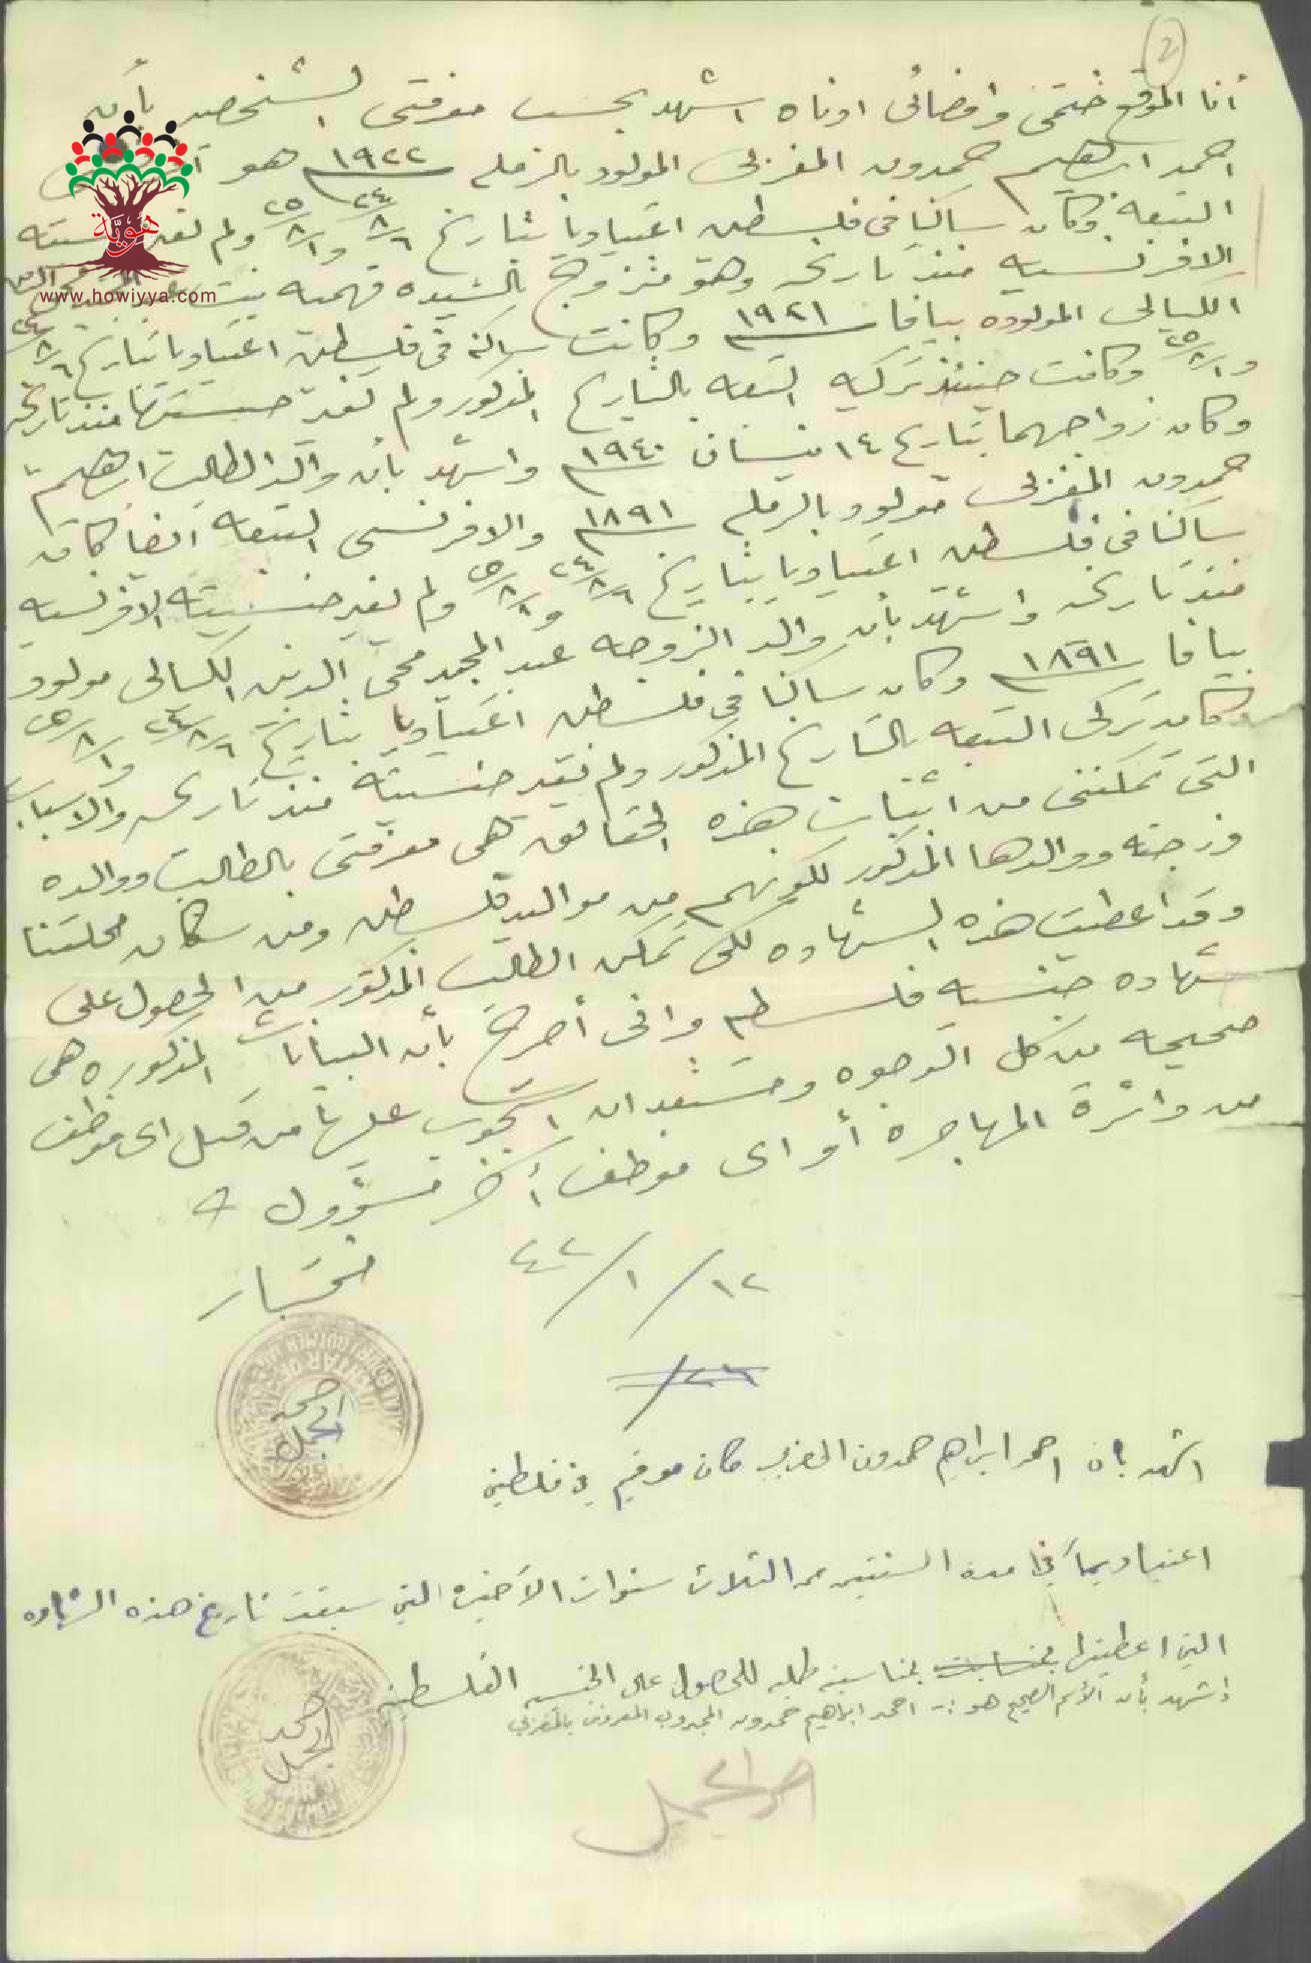 (2)
أنا الموقع ختمي وامضائي ادناه اشهد بحسب معرفتي الشخصيه بأن
احمد ابراهيم حمدون المغربي المولود بالرمله ١٩٢٢ هو
التبعه وكان ساكنا في فلسطين اعتياديا بتاريخ ٢٤/٨/٦ و ٢٥/٨/١ ولم
الافرنسيه منذ تاريخه وهو متزوج بالسيده فهميه بنت
الكيالي المولوده بيافا ١٩٢١ وكانت ساكنة في فلسطين اعتياديا بتاريخ ٢٤/٨/٦
و ٢٥/٨/١ وكانت حينئذ تركيه التبعه بالتاريخ المذكور ولم تفقد جنسيتها منذ تاريخه
وكان زواجهما بتاريخ ١٤ نيسان ١٩٤٠ واشهد بأن والد الطالب ابراهيم
حمدون المغربي مولود بالرمله ١٨٩١ والافرنسي التبعه ايضا كان
ساكنا في فلسطين اعتياديا بتاريخ ٢٤/٨/٦ و ٢٥/٨/١ ولم يفقد جنسيته الافرنسيه
منذ تاريخه واشهد بأن والد الزوجه عبد المجيد محي الدين الكيالي مولود
بيافا ١٨٩١ وكان ساكنا في فلسطين اعتياديا بتاريخ ٢٤/٨/٦ و ٢٥/٨/١
وكان تركي التبعه بالتاريخ المذكور ولم يفقد جنسيته منذ تاريخه والاسباب
التي تمكنني من اثبات هذه الحقائق هي معرفتي بالطالب ووالده
وزوجته ووالدها المذكور لكونهم من مواليد فلسطين ومن سكان محلتنا
وقد اعطيت هذه الشهاده لكي تمكن الطالب المذكور من الحصول على
شهاده جنسيه فلسطينيه واني أصرح بأن البيانات المذكوره هي
صحيحه من كل الوجوه ومستعد ان استجوب عليها من قبل اي موظف
من دائرة المهاجرة أو اي موظف آخر مسؤول
٤٢/١/١٢
مختار
احمد الجمل
اشهد بان احمد ابراهيم حمدون المغربي كان موقيم في فلسطين
اعتياديا في مدة السنتين من الثلاث سنوات الأخيرة التي سبقت تاريخ هذه الشهاده
التي اعطيتها بمناسبة طلبه للحصول على الجنسيه الفلسطينيه
اشهد بأن الأسم الصحيح هو :- احمد ابراهيم حمدون المجدوب المعروف بالمغربي
احمد الجمل
احمد الجمل
هوية
www.howiyya.com